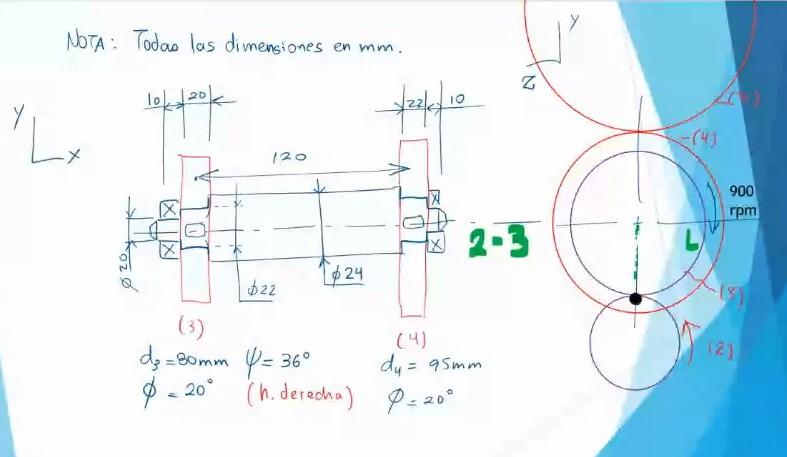 NOTA: Todas las dimensiones en mm.
y
x
10
20
22
10
120
X
X
X
X
φ20
φ22
φ24
(3)
(4)
d3=80mm ψ= 36°
φ = 20° (h. derecha)
d4= 95mm
φ=20°
2-3
y
z
(5)
(4)
900
rpm
L
(3)
(2)